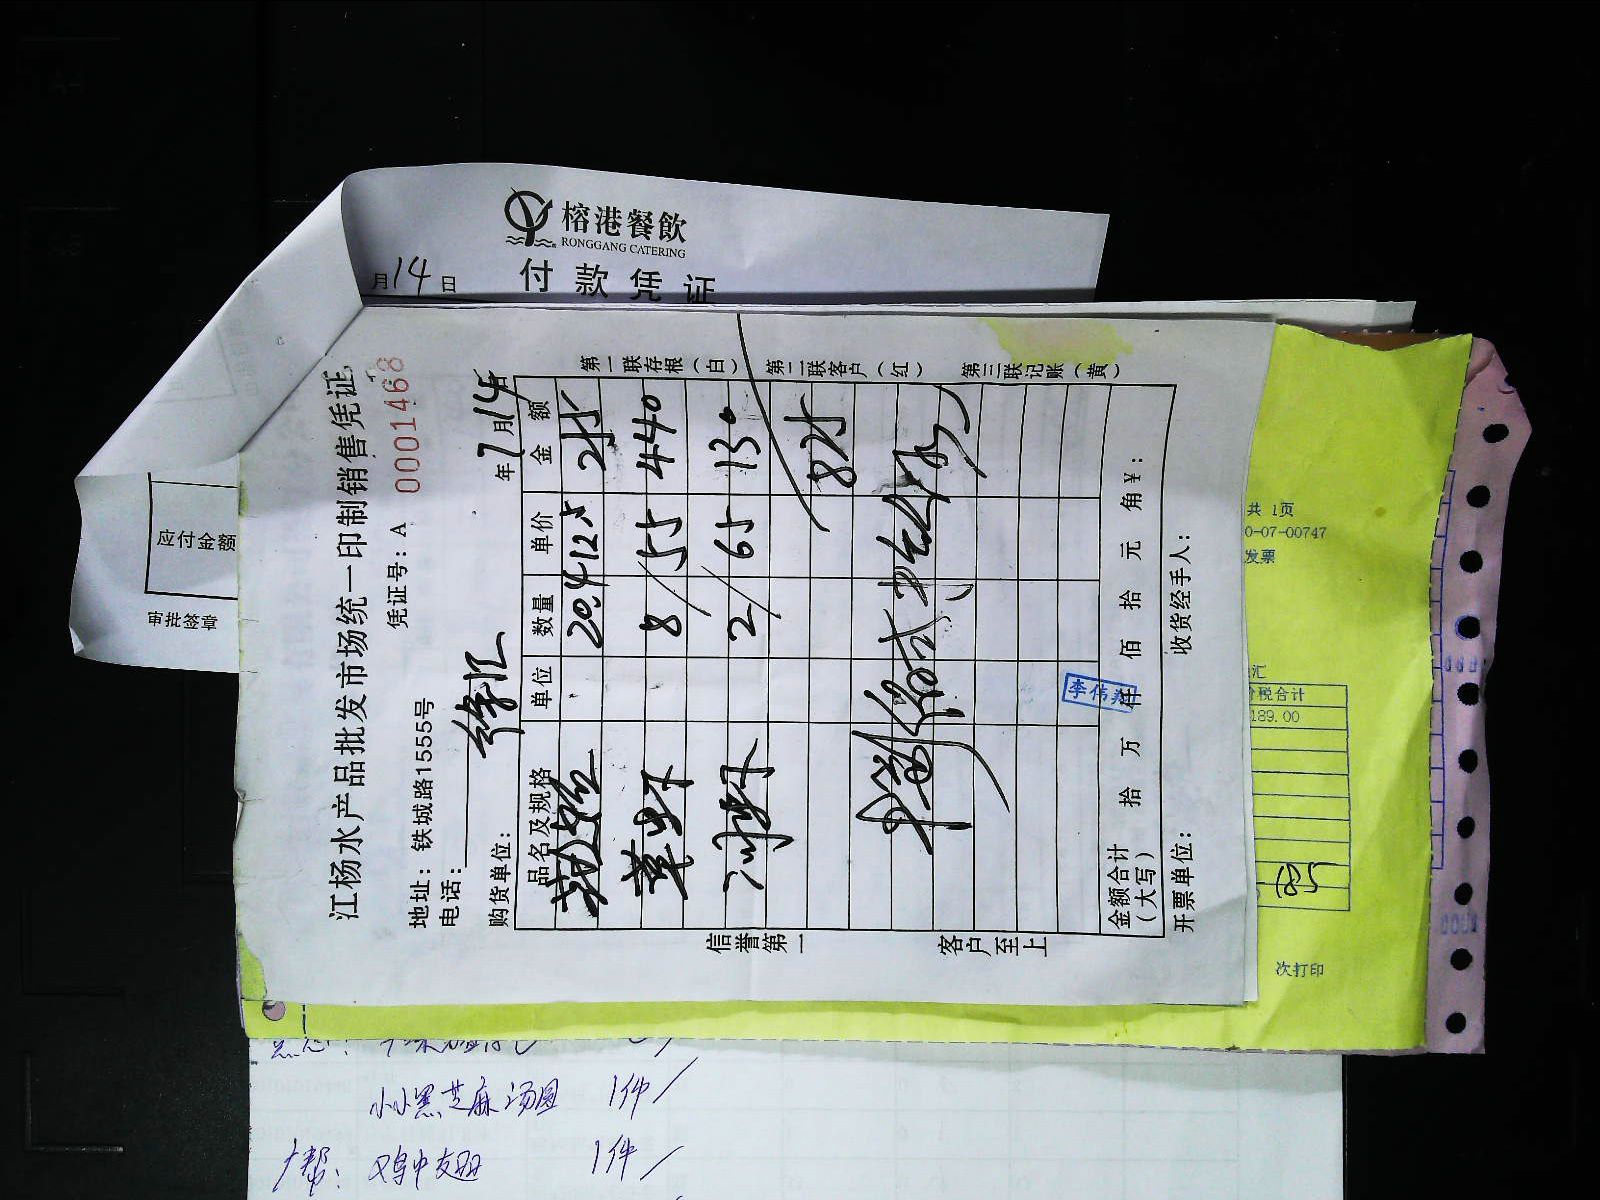 榕港餐飲
RONGGANG CATERING
付款凭证
月14日
应付金额
审批签章
江杨水产品批发市场统一印制销售凭证
凭证号：A 0001468
地址：铁城路15555号
电话：
购货单位： 徐汇
年7月14日
品名及规格 单位 数量 单价 金额
20.4 12.5 255
草虾 8 55 440
冲虾 2 65 130
825
金额合计（大写） 拾 万 仟 佰 拾 元 角 ¥：
开票单位： 收货经手人：
第一联存根（白） 第二联客户（红） 第三联记账（黄）
信誉第一 客户至上
共 1页
0-07-00747
发票
汇
价税合计
189.00
次打印
小小黑芝麻汤圆 1件
大帮： 鸡中翅 1件